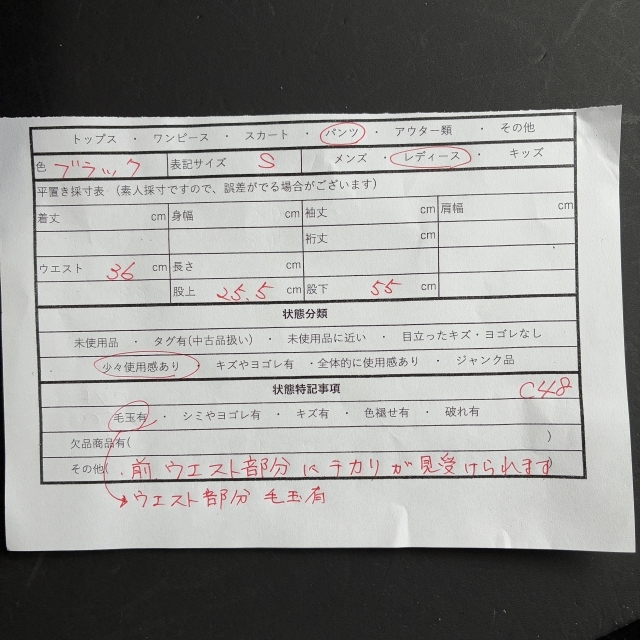 トップス ・ ワンピース ・ スカート ・ パンツ ・ アウター類 ・ その他
色 ブラック 表記サイズ S メンズ ・ レディース ・ キッズ
平置き採寸表 （素人採寸ですので、誤差がでる場合がございます）
着丈 cm 身幅 cm 袖丈 cm 肩幅 cm
裄丈 cm
ウエスト 36 cm 長さ cm
股上 25.5 cm 股下 55 cm
状態分類
未使用品 ・ タグ有(中古品扱い) ・ 未使用品に近い ・ 目立ったキズ・ヨゴレなし
・ 少々使用感あり ・ キズやヨゴレ有 ・全体的に使用感あり ・ ジャンク品
状態特記事項 C48
毛玉有 ・ シミやヨゴレ有 ・ キズ有 ・ 色褪せ有 ・ 破れ有
欠品商品有( )
その他( 前 ウエスト部分にテカリが見受けられます )
ウエスト部分 毛玉有